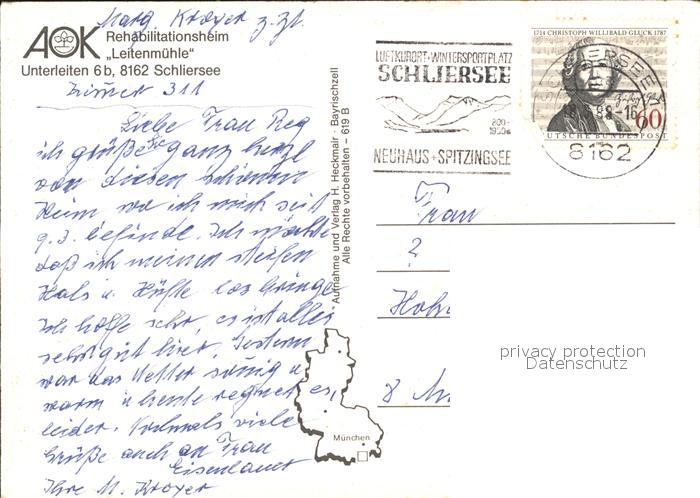 Marg. Kroyer z. Zt.
AOK Rehabilitationsheim
„Leitenmühle"
Unterleiten 6b, 8162 Schliersee
Zimmer 311
Liebe Frau Reg
ich grüße Sie ganz herzl
von diesem schönen
Heim wo ich mich seit
9.3. befinde. Ich möchte
daß ich meinen steifen
Hals u. Hüfte los bringe
Ich hoffe sehr, es ist alles
sehr gut hier. Gestern
war das Wetter sonnig u
warm u heute regnet es,
leider. Nochmals viele
Grüße auch an Frau
Eisenlauer
Ihre M. Kroyer
Aufnahme und Verlag H. Heckmair · Bayrischzell
Alle Rechte vorbehalten – 619 B
München
LUFTKURORT+WINTERSPORTPLATZ
SCHLIERSEE
800-
1900m
NEUHAUS+SPITZINGSEE
1714 CHRISTOPH WILLIBALD GLUCK 1787
60
UTSCHE BUNDESPOST
88-16
8162
Frau
?
Hohn
8 M
privacy protection
Datenschutz